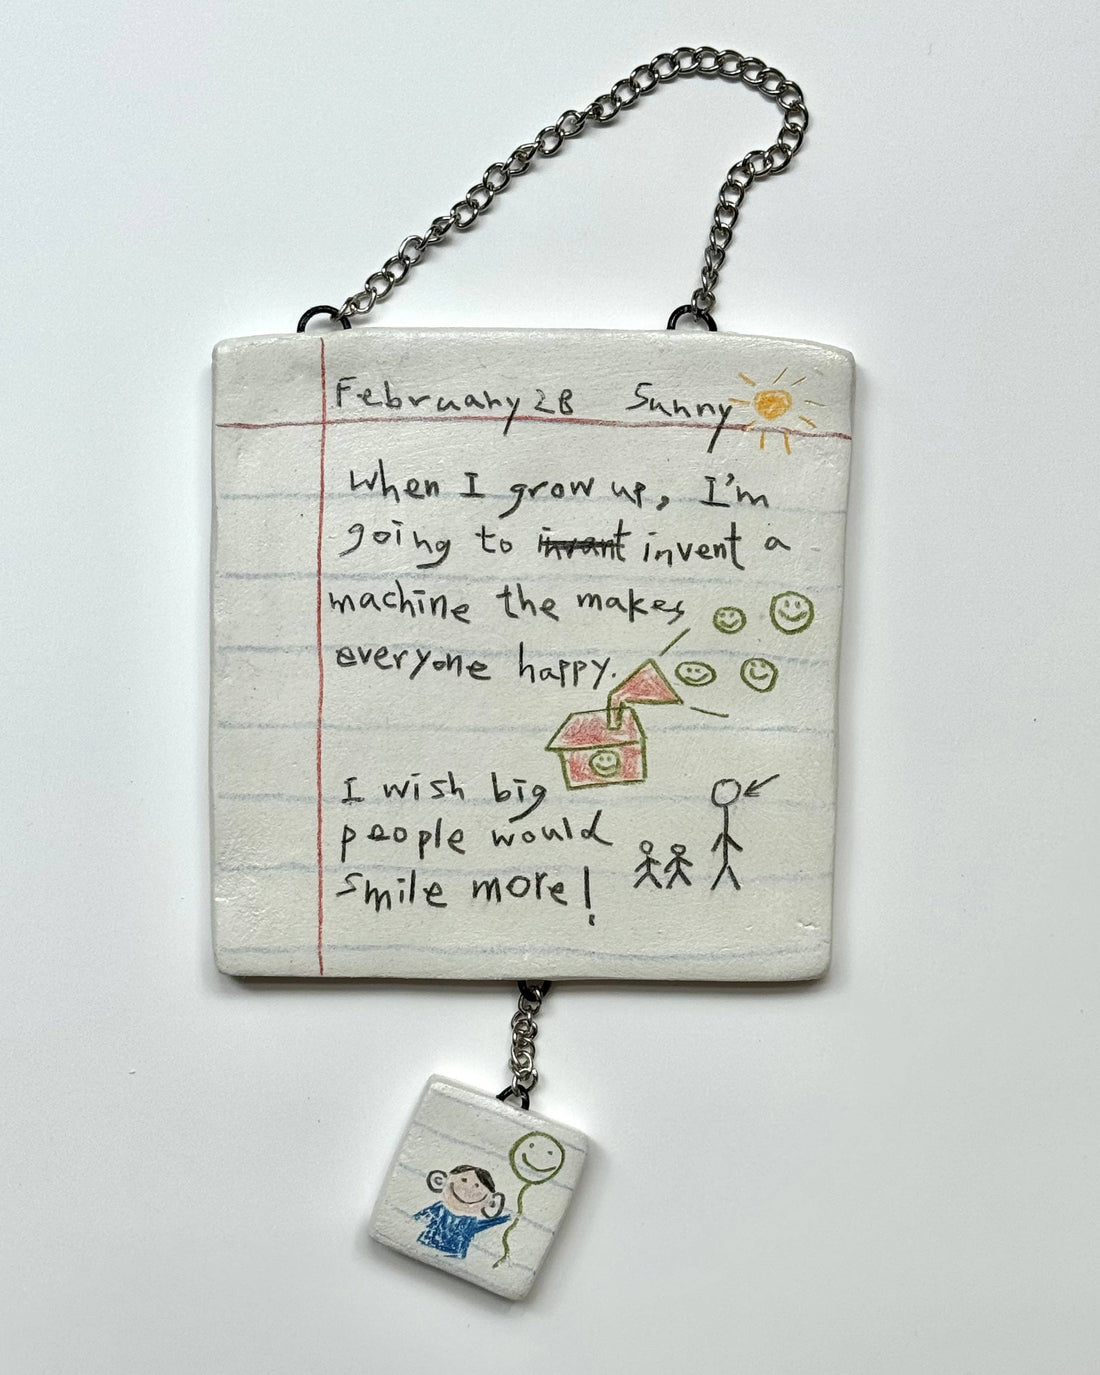 February 28 Sunny
When I grow up, I'm
going to invant invent a
machine the makes
everyone happy.
I wish big
people would
smile more!